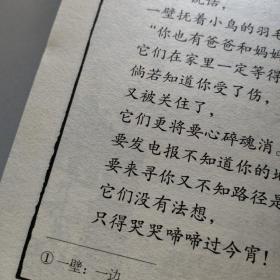 说话，
一壁抚着小鸟的羽毛
“你也有爸爸和妈妈
它们在家里一定等得
倘若知道你受了伤，
又被关住了，
它们更将要心碎魂消
要发电报不知道你的地
要来寻你又不知路径是
它们没有法想，
只得哭哭啼啼过今宵！
①一壁：一边